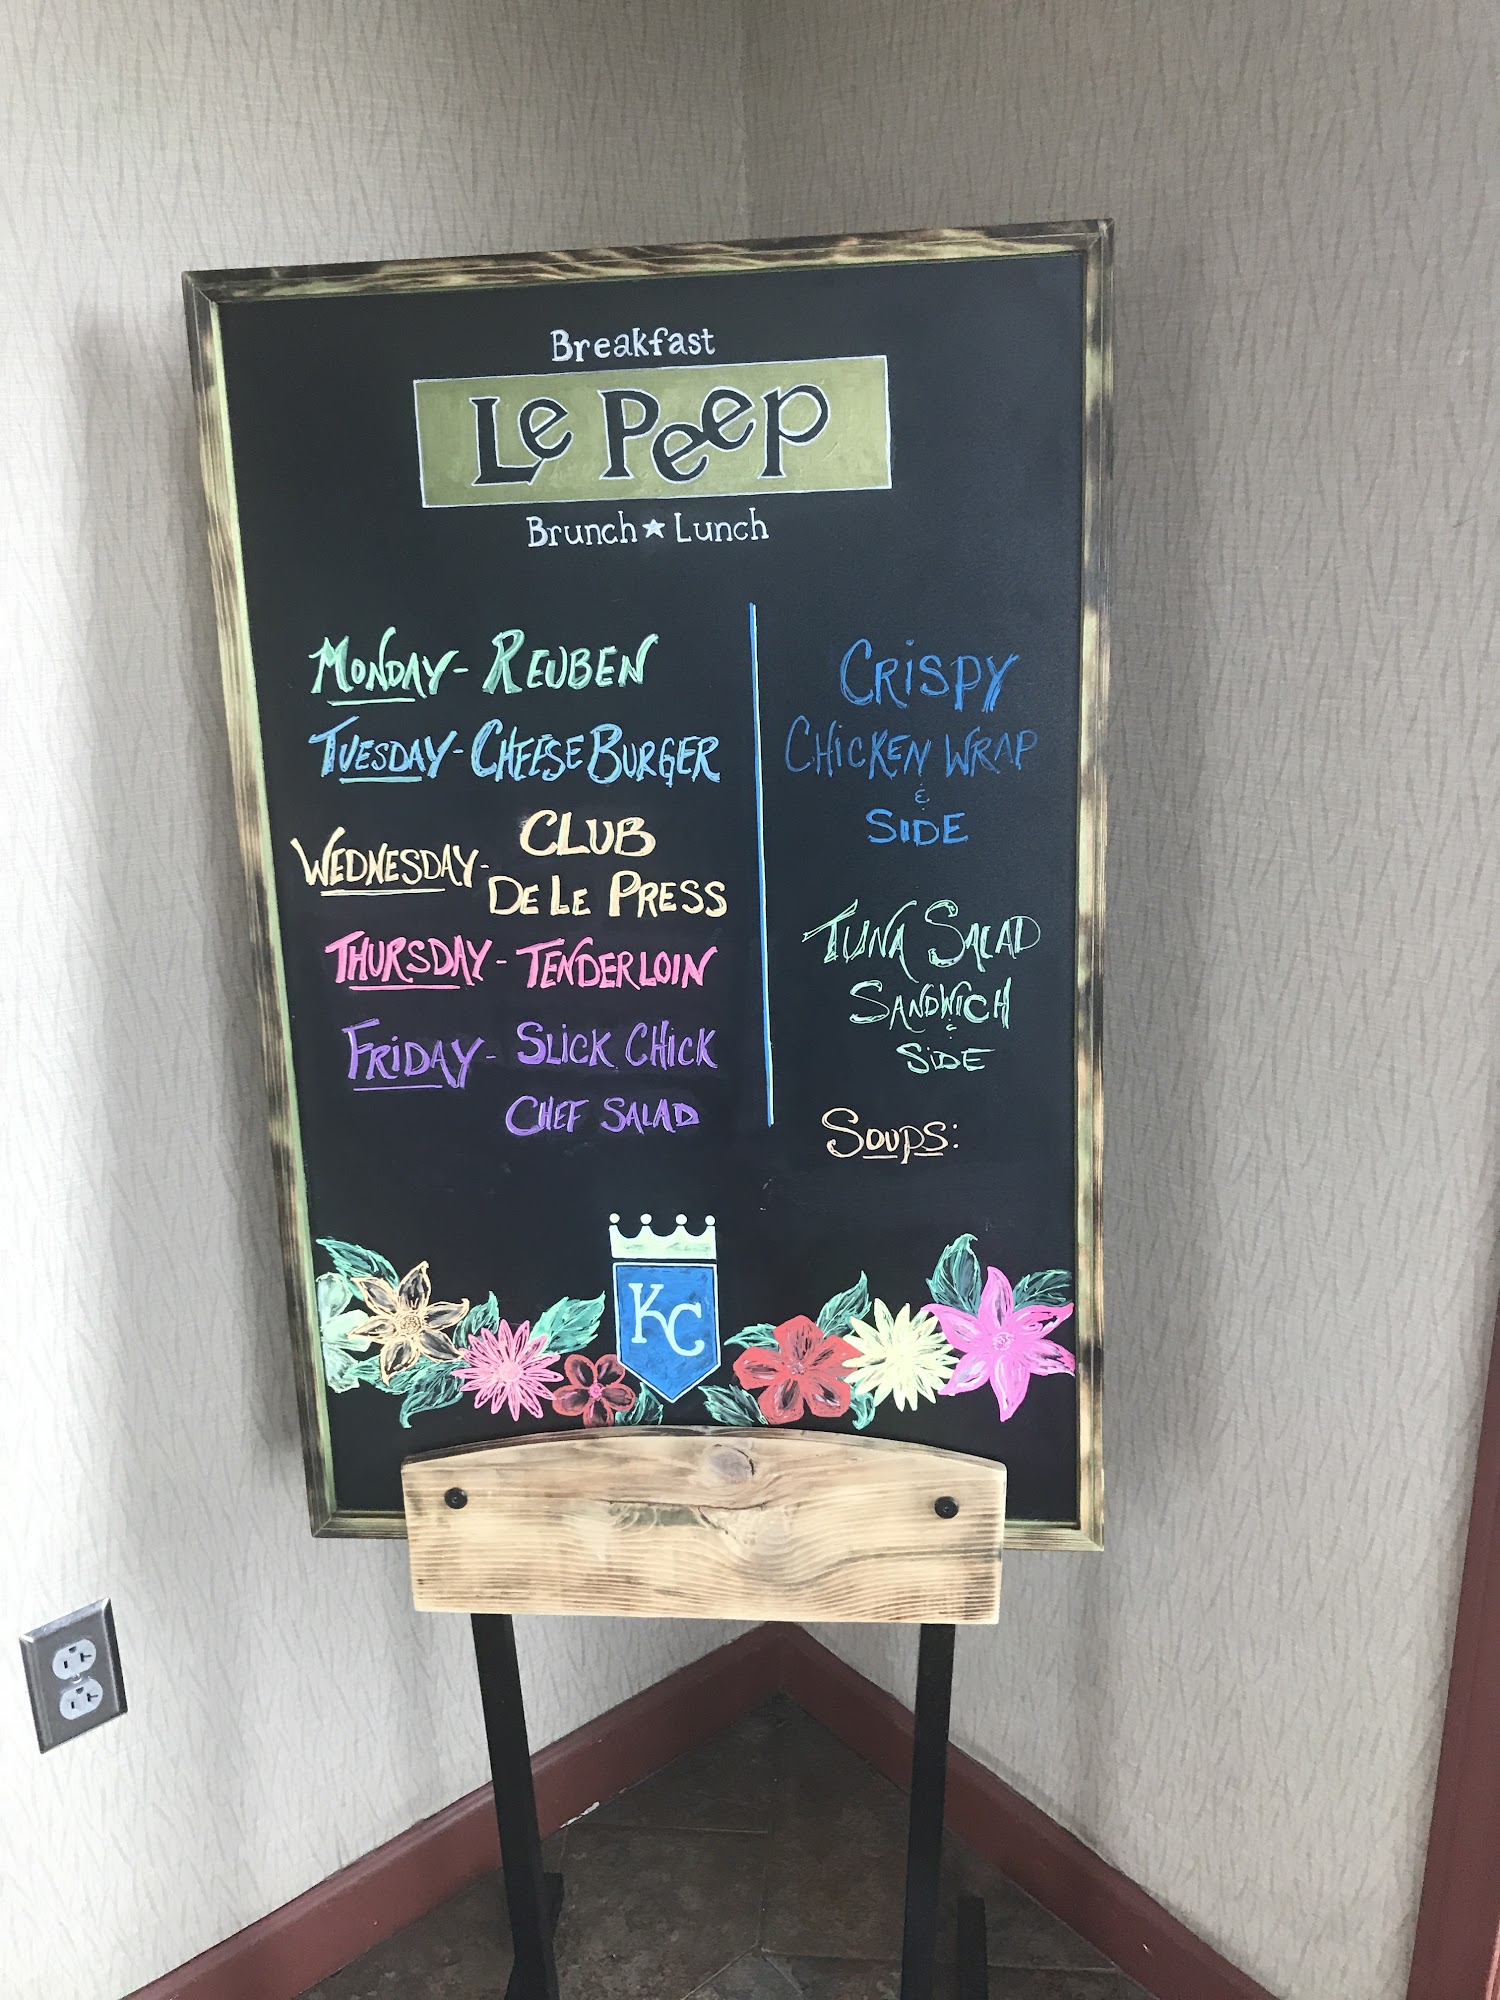 Breakfast
Le Peep
Brunch ★ Lunch
MONDAY - REUBEN
TUESDAY - CHEESE BURGER
WEDNESDAY - CLUB
DE LE PRESS
THURSDAY - TENDERLOIN
FRIDAY - SLICK CHICK
CHEF SALAD
CRISPY
CHICKEN WRAP
&
SIDE
TUNA SALAD
SANDWICH
&
SIDE
SOUPS:
KC